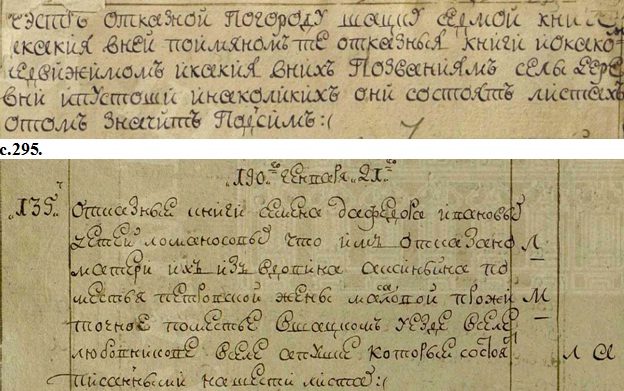 часть отказной погороду шацку седмой книги
икакия вней поимяномъ те отказныя книги иокако
недвижимомъ икакия внихъ позваниямъ селы дере
вни ипустоши инаколикихъ они состоятъ листахъ
отомъ значитъ подсимъ:
с.295.
190 генваря 21
135
отказные книги семена дафедора ивановы
детей ломаносовы что имъ отказано Л
матери ихъ изъ вдовина поместья
петровской жены прожи М
точное поместье вшацкомъ уезде вселе
любовникове вселе которые состоя Л
писанными нашести листа: